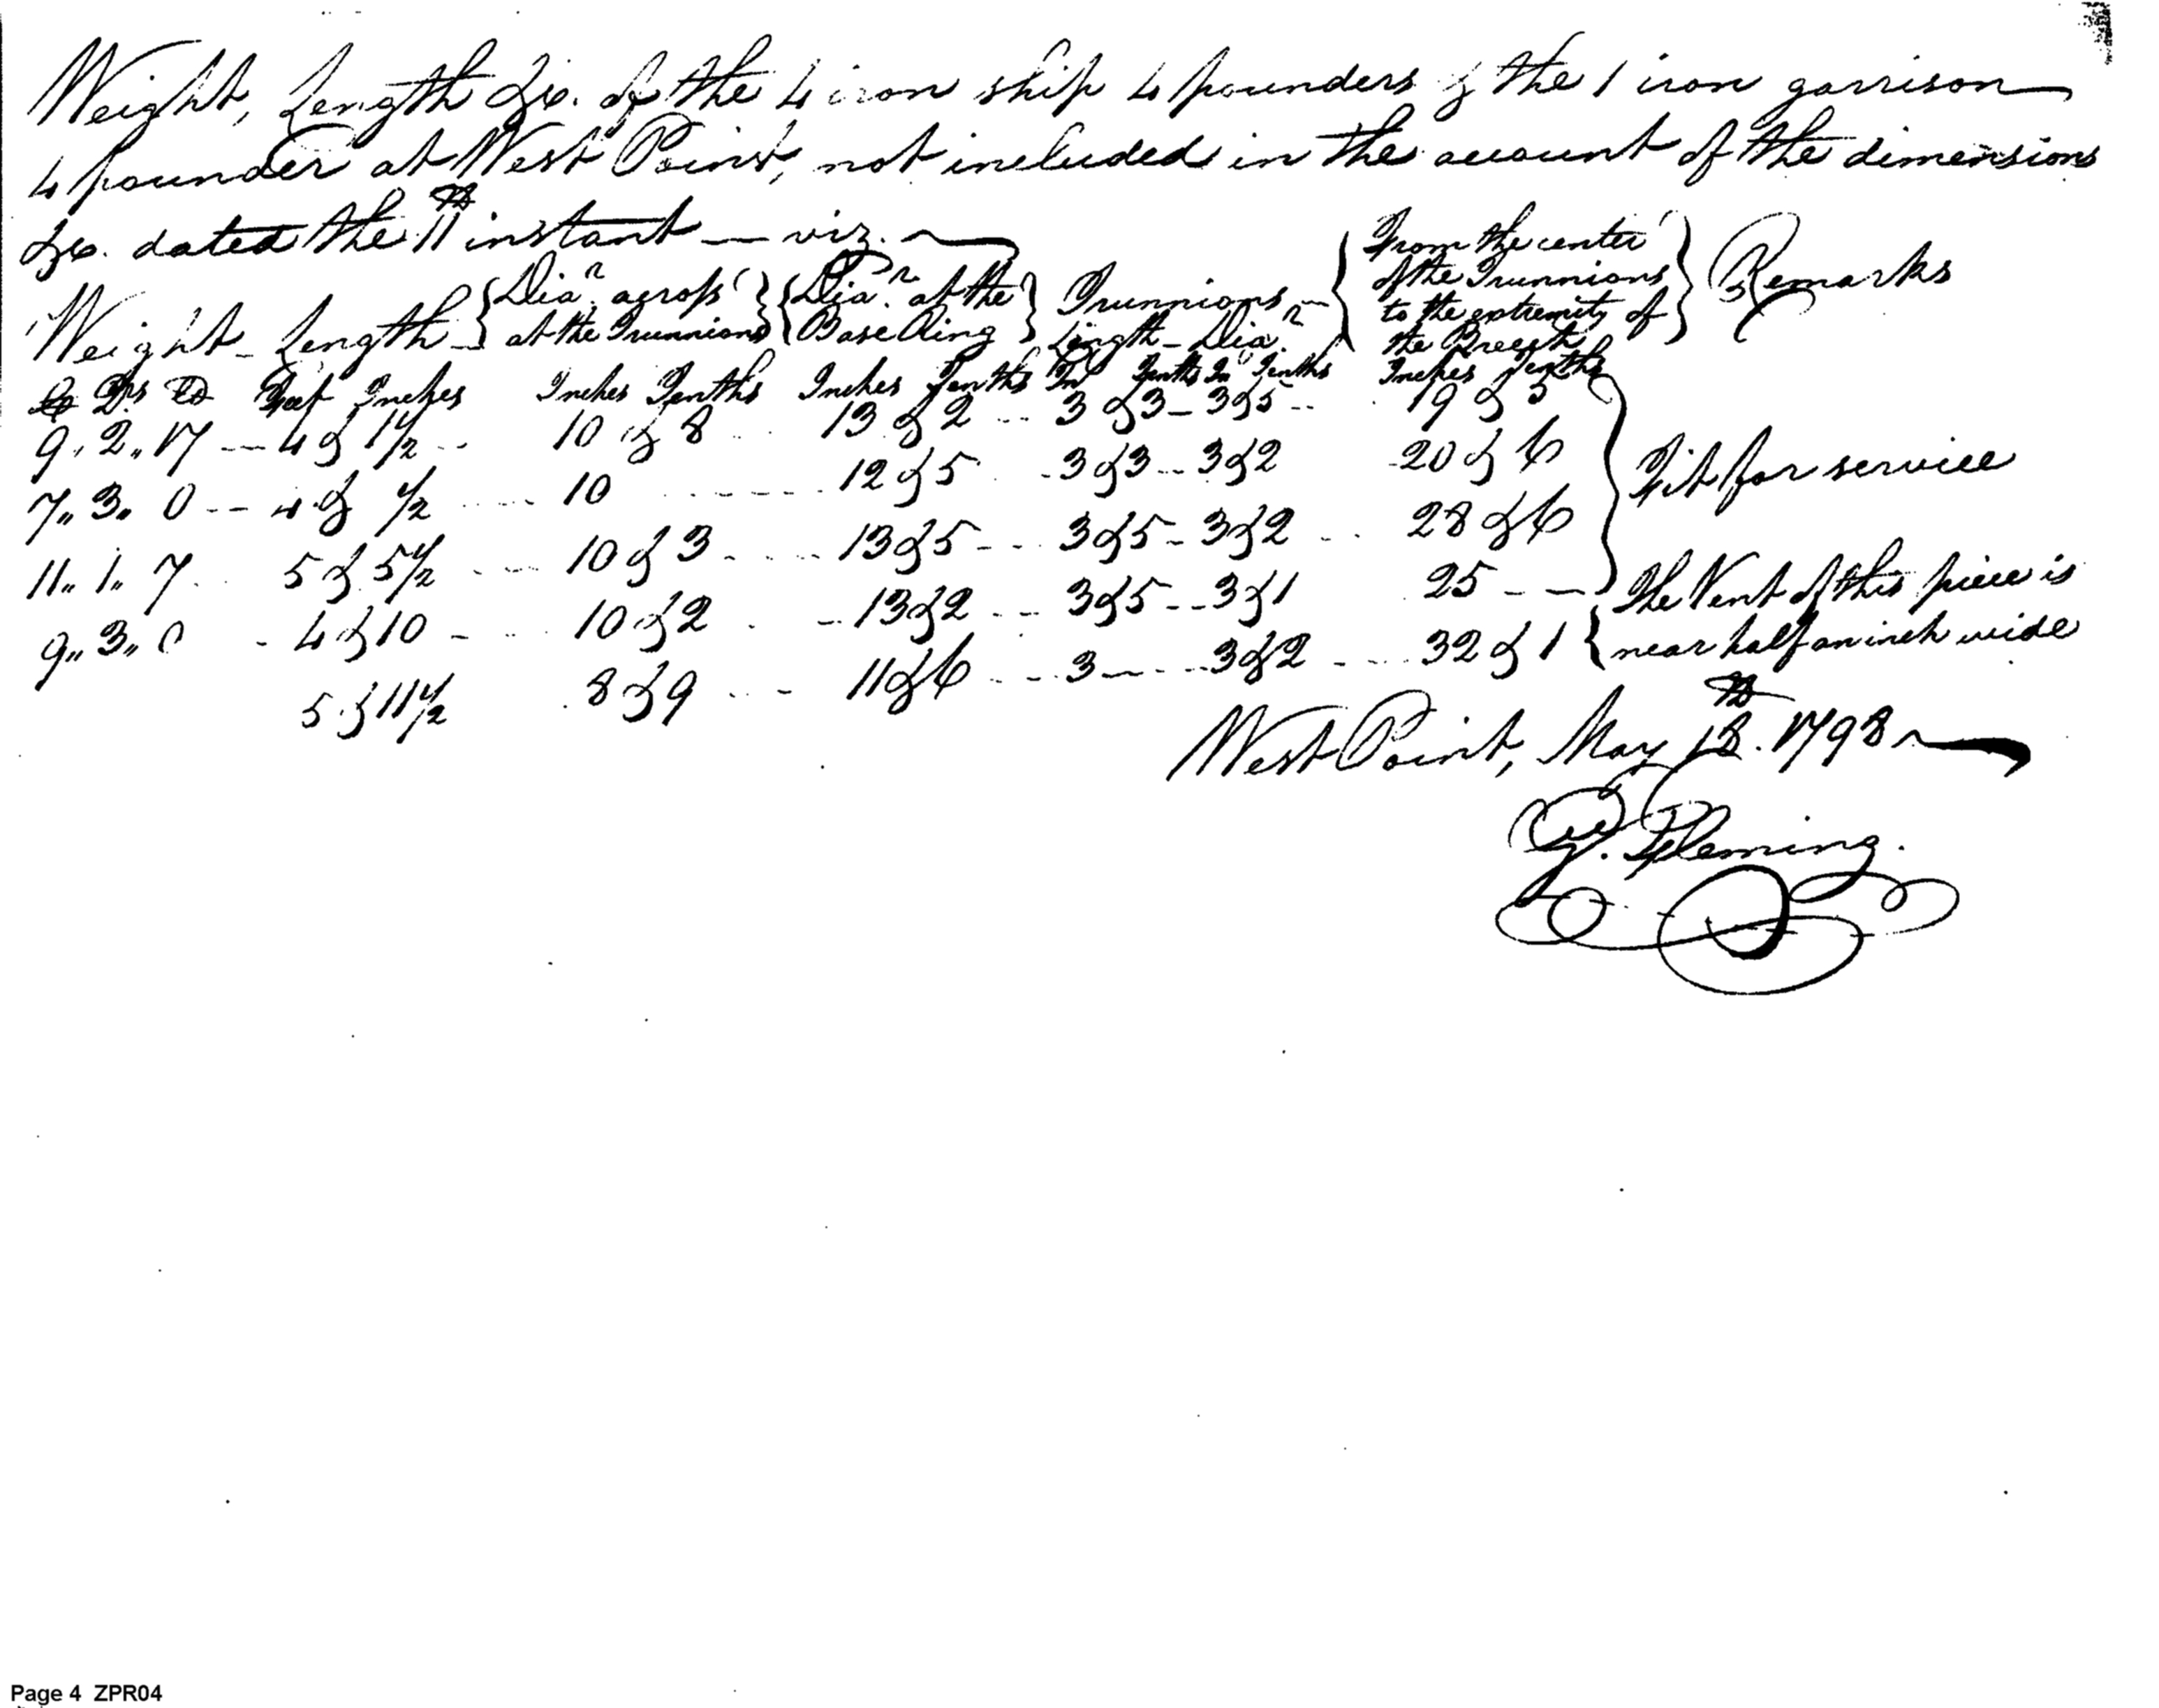 Weight, Length &c. of the 4 iron ship 4 pounders & the 1 iron garrison
4 pounder at West Point, not included in the account of the dimensions
&c. dated the 11th instant — viz.
Weight - Length - { Diar. across at the Trunnions } { Diar. at the Base Ring } Trunnions Length - Diar. { From the center of the Trunnions to the extremity of the Breech } Remarks
Qrs lb Feet Inches Inches Tenths Inches Tenths In Tenths In Tenths Inches Tenths
9,, 2,, 17 -- 4 & 1 1/2 -- 10 & 8 13 & 2 --- 3 & 3 - 3 & 5 -- 19 & 5
7,, 3,, 0 -- 4 & 1/2 ---- 10 ------ 12 & 5 - 3 & 3 -- 3 & 2 20 & 6 } Fit for service
11,, 1,, 7 5 & 5 1/2 --- 10 & 3 ---- 13 & 5 --- 3 & 5 - 3 & 2 -- 28 & 6
9,, 3,, 0 - 4 & 10 - 10 & 2 - 13 & 2 --- 3 & 5 -- 3 & 1 25 --
5 & 11 1/2 8 & 9 --- 11 & 6 --- 3 ---- 3 & 2 --- 32 & 1 { The Vent of this piece is
near half an inch wide
West Point, May 18th. 1798
G. Fleming.
Page 4 ZPR04